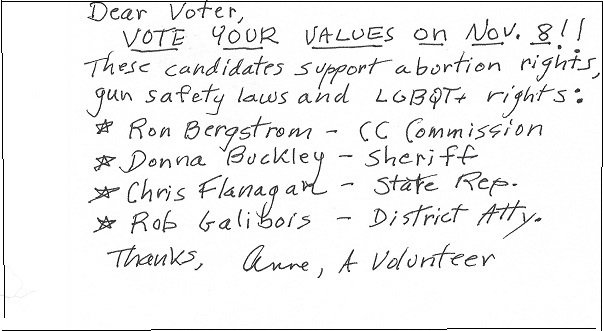 Dear Voter,
VOTE YOUR VALUES on Nov. 8!!
These candidates support abortion rights,
gun safety laws and LGBQT+ rights:
☆ Ron Bergstrom - CC Commission
☆ Donna Buckley - Sheriff
☆ Chris Flanagan - State Rep.
☆ Rob Galibois - District Atty.
Thanks, Anne, A Volunteer